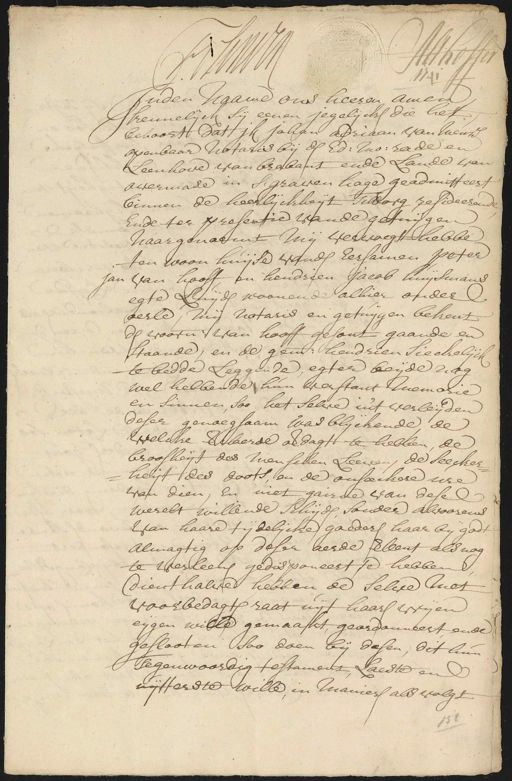 1741
In den Name ons heeren amen
kennelijck sij eenen jegelijck die het
behoort dat ick Johan Adriaan van
openbaar Notaris bij d' Ed: mo: rade en
Leenhove van brabant ende Lande van
overmaze in s'graven hage geadmitteert
binnen de heerlijckheijt Tilborg residerende
Ende ter presentie vande getuijgen
naargenoemt mij vervoegt hebbe
ten woon huijse vande Eersamen peter
jan van hooff en hendrien Jacob
egte Luijden woonende alhier onder
mij notaris en getuijgen bekent
de voorn: van hooff gesont gaande en
staande, en de gem: hendrien sieckelijck
te bedde Leggende, egter beijde nog
wel hebbende hun verstant memorie
en sinnen, soo het selve uijt verleijden
deser genoegsaam was blijckende, de
welcke verclaerde bedagt te hebben, de
broosheijt des menschen Leeven, de seecker-
heijt des doots, en de onseeckere ure
van dien, en niet gaerne van dese
werelt willende scheijden sonder alvorens
van haare tijdelijcke goederen haar bij godt
almagtig op deser aerde verleent als nog
te verleenen gedisponeert te hebben
dienthalven hebben de selve met
voorbedagten raat uijt haaren vrijen
eijgen wille gemaackt geordonneert, ende
geslooten soo doen bij desen, dit hun
tegenwoordig testament, Laeste en
uijtterste wille, in manieren als volgt